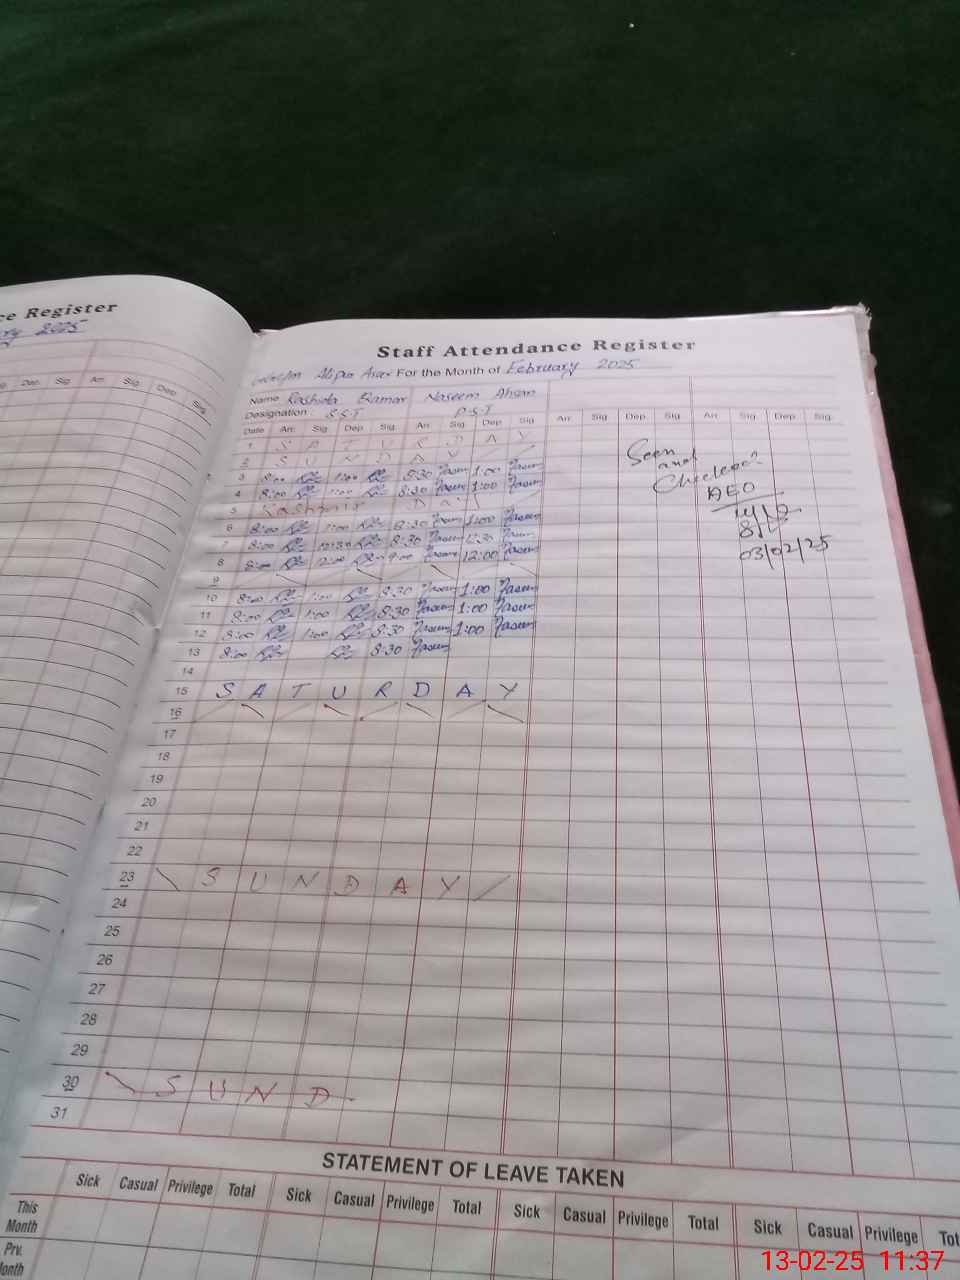 ce Register
2025
Dep. Sig. Arr. Sig. Dep. Sig.
Staff Attendance Register
For the Month of February 2025
Name Naseem Ahsan
Designation : S.S.T P.S.T
Date Arr. Sig. Dep. Sig. Arr. Sig. Dep. Sig. Arr. Sig. Dep. Sig. Arr. Sig. Dep. Sig.
1 S A T U R D A Y
2 S U N D A Y
3 8:00 1:00 8:30 Naseem 1:00 Naseem
4 8:00 1:00 8:30 Naseem 1:00 Naseem
5 Kashmir D A Y
6 8:00 1:00 8:30 Naseem 1:00 Naseem
7 8:00 8:30 Naseem Naseem
8 8:00 12:00 9:00 Naseem 12:00 Naseem
9
10 8:00 1:00 8:30 Naseem 1:00 Naseem
11 8:00 1:00 8:30 Naseem 1:00 Naseem
12 8:00 1:00 8:30 Naseem 1:00 Naseem
13 8:00 8:30 Naseem
14
15 S A T U R D A Y
16
17
18
19
20
21
22
23 S U N D A Y
24
25
26
27
28
29
30 S U N D
31
Seen
and
Checked
AEO
03/02/25
STATEMENT OF LEAVE TAKEN
Sick Casual Privilege Total Sick Casual Privilege Total Sick Casual Privilege Total Sick Casual Privilege Tot
This
Month
Prv.
Month
13-02-25 11:37